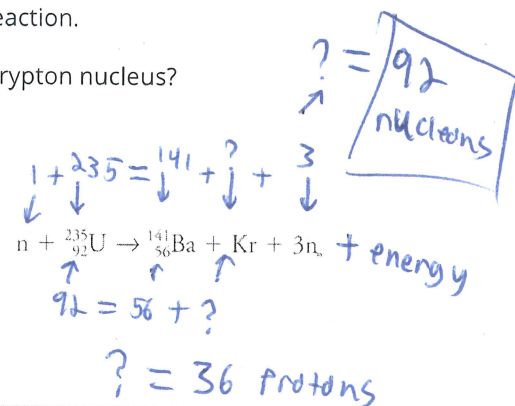 eaction.
rypton nucleus?
? = 92
nucleons
1 + 235 = 141 + ? + 3
n + ²³⁵₉₂U → ¹⁴¹₅₆Ba + Kr + 3n + energy
92 = 56 + ?
? = 36 protons